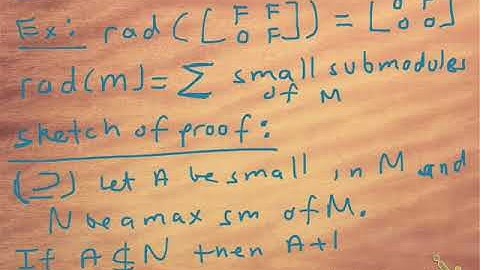 Ex: rad([F F O F]) = [O F O O]
rad(m) = Σ small submodules
of M
sketch of proof:
(⊇) Let A be small in M and
N be a max sm of M.
If A ⊄ N then A+1